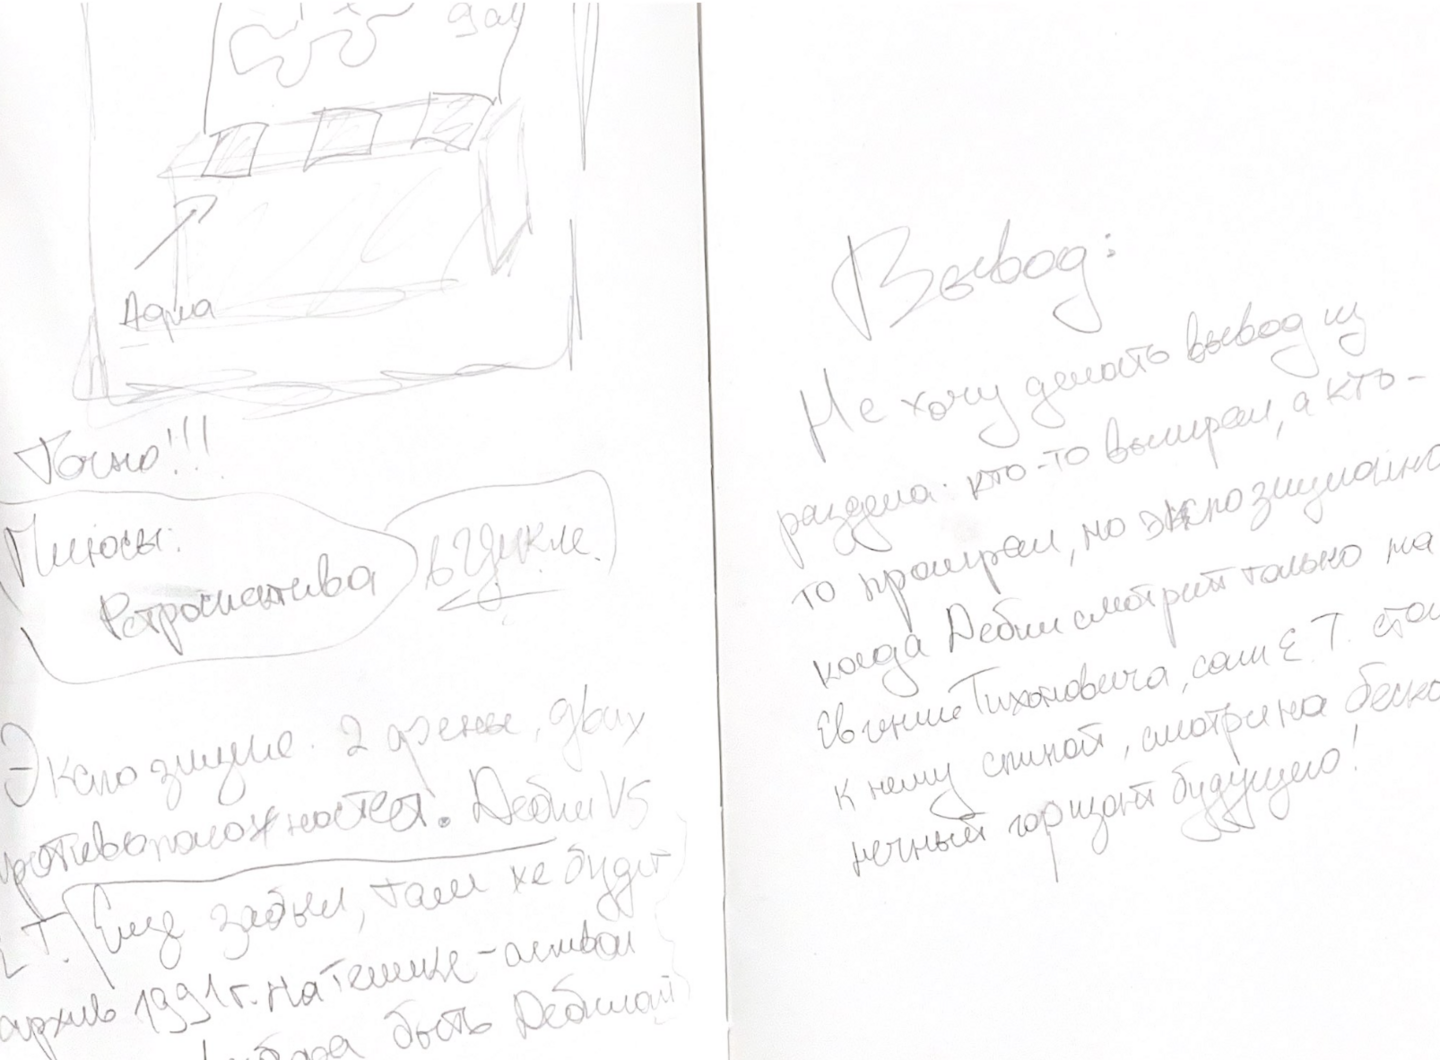 Точно!!!
Плюсы:
Ретроспектива
в цикле.
Экспозиция. 2 арены, двух
противоположностей. Дебил VS
Т. Ещё забыл, там же будет
архив 1991г. На
быть Дебилом
Вывод:
Не хочу делать вывод из
раздела: кто-то выиграл, а кто-
то проиграл, но экспозиционно
когда Дебил смотрит только на
Евгения Тихоновича, сам Е. Т. стои
к нему спиной, смотря на беско
нечный горизонт будущего!